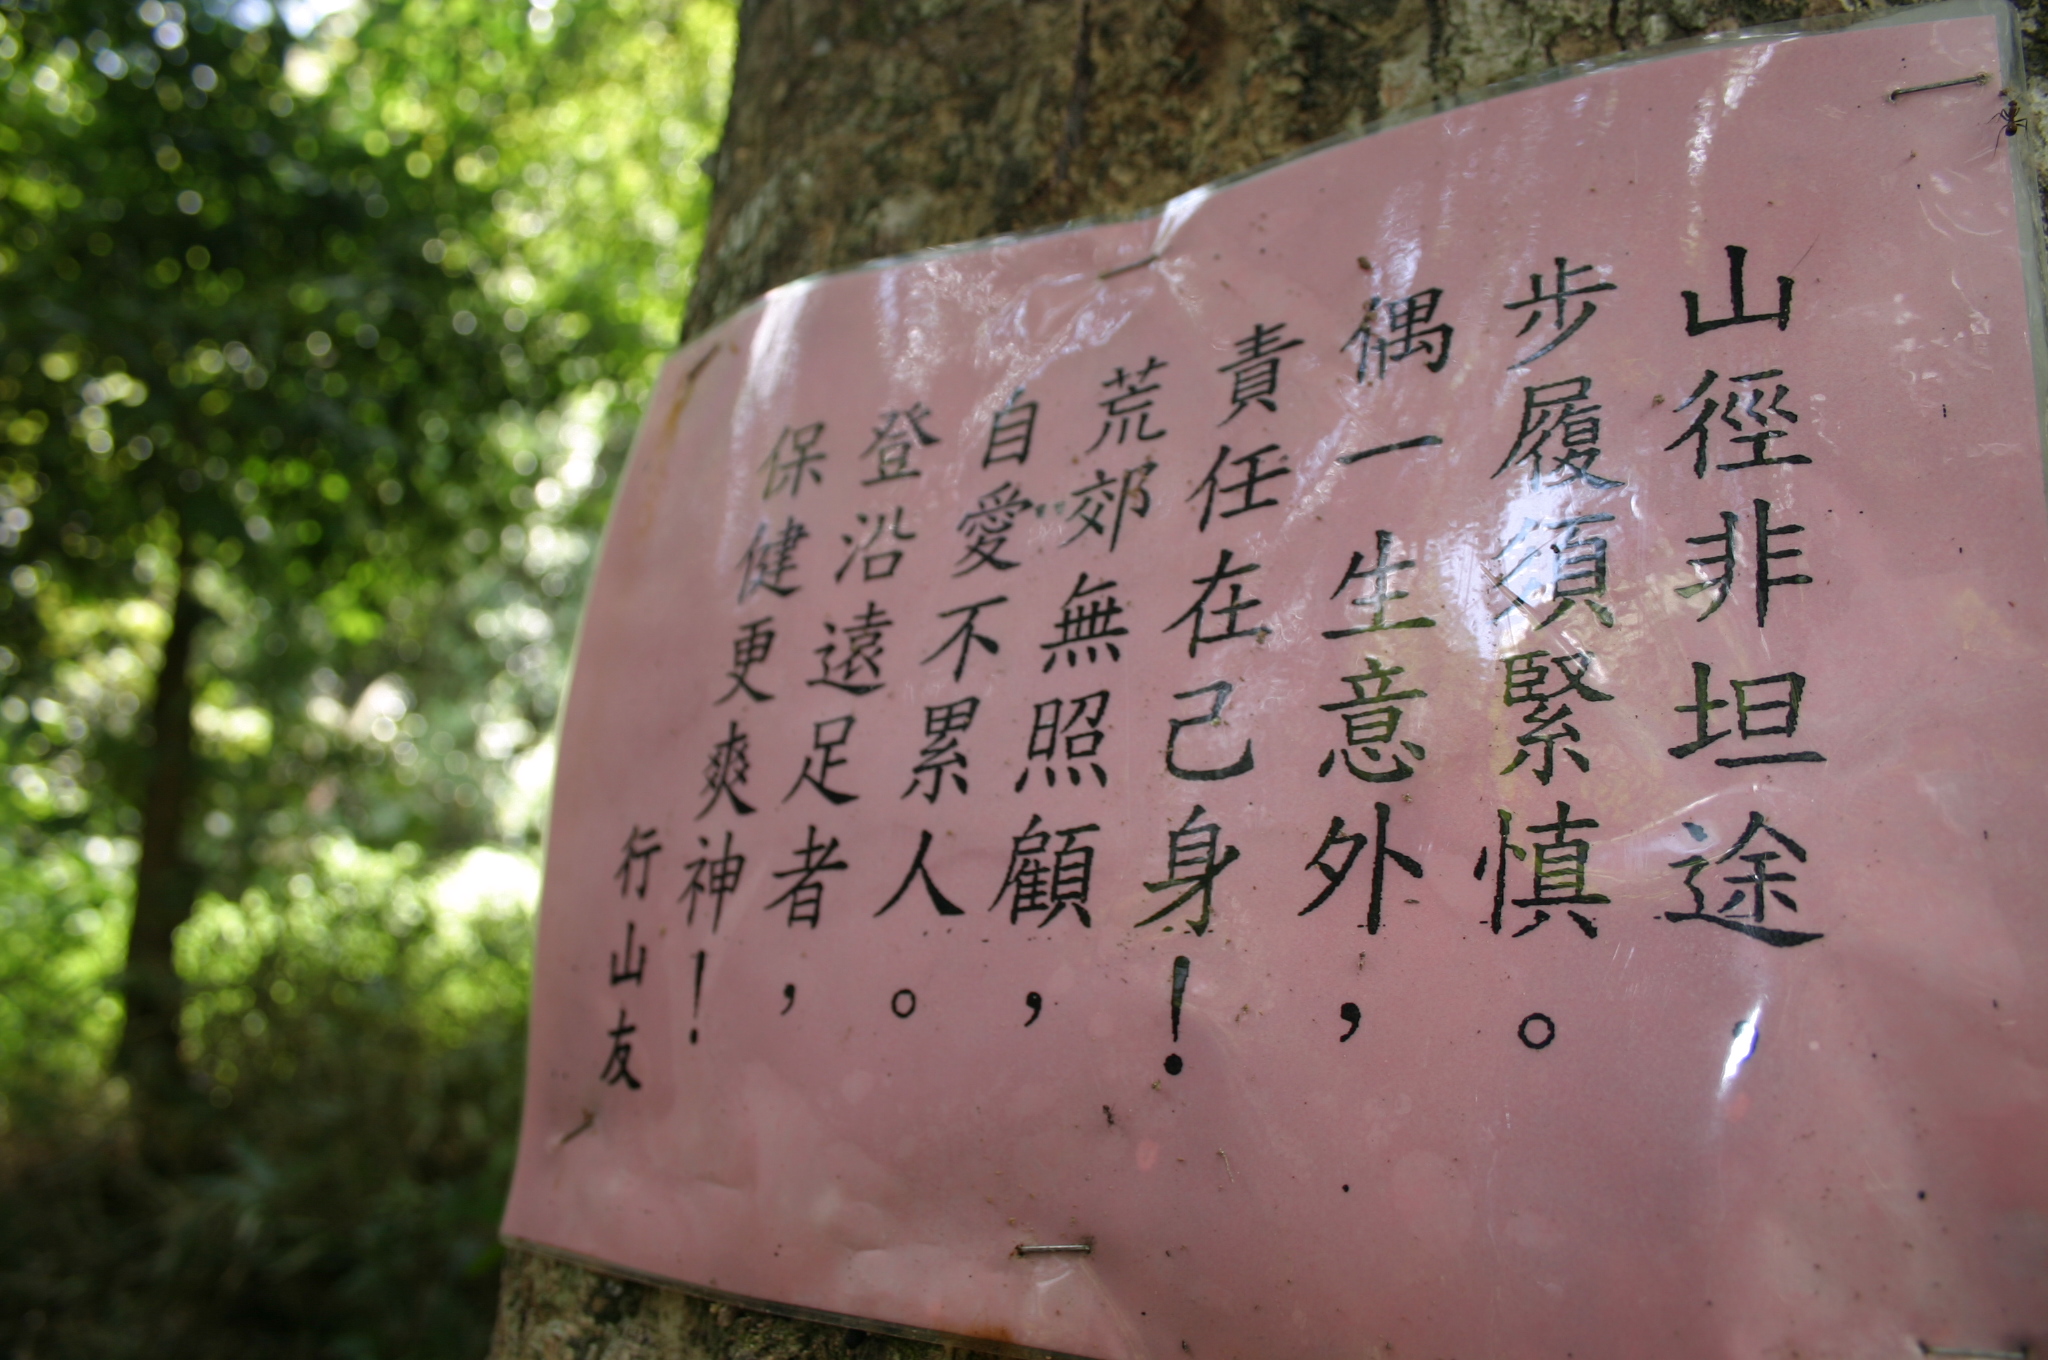 山徑非坦途
步履須緊慎。
偶一生意外，
責任在己身！
荒郊無照顧，
自愛不累人。
登沿遠足者，
保健更爽神！
行山友